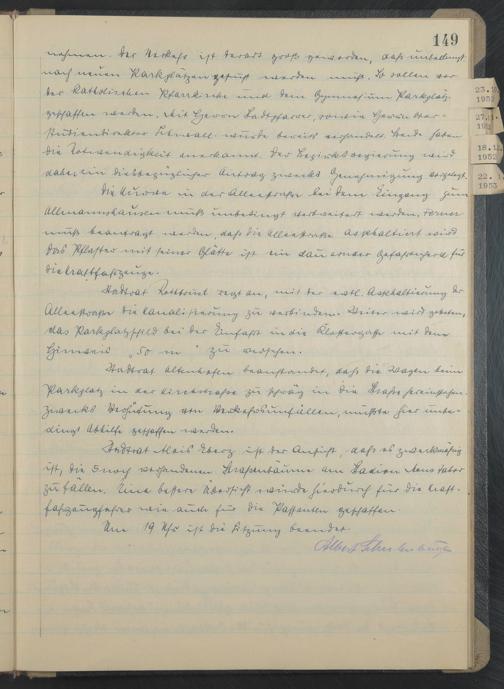 149
nehmen. Der Verkehr ist derart groß geworden, daß unbedingt
nach neuen Parkplätzen gesucht werden muß. So sollen vor
der katholischen Pfarrkirche und dem Gymnasium Parkplätze
geschaffen werden. Mit Herrn Stadtpfarrer, sowie Herrn Ober-
studiendirektor wurde bereits verhandelt. Beide haben
die Notwendigkeit anerkannt. Der Bezirksregierung wird
daher ein diesbezüglicher Antrag zwecks Genehmigung vorgelegt.
Die Kurve in der Alleestraße bei dem Eingang zum
muß unbedingt verbreitert werden. Ferner
muß beantragt werden, daß die Alleestraße asphaltiert wird
das Pflaster mit seiner Glätte ist ein dauernder Gefahrenherd für
die Kraftfahrzeuge.
Stadtrat regt an, mit der evtl. Asphaltierung der
Alleestraße die Kanalisierung zu verbinden. Weiter wird gebeten,
das Parkplatzschild bei der Einfahrt in die Klostergasse mit dem
Hinweis „50 m" zu versehen.
Stadtrat Altenhofen beanstandet, daß die Wagen beim
Parkplatz in der zu schräg in die Straße hereinstehen.
zwecks Verhütung von Verkehrsunfällen, müßte hier unbe-
dingt Abhilfe geschaffen werden.
Stadtrat Alois ist der Ansicht, daß es zweckmäßig
ist, die 3 noch vorhandenen Straßenbäume am
zu fällen. Eine bessere Übersicht würde hierdurch für die Kraft-
fahrzeugführer wie auch für die Passanten geschaffen.
Um 19 Uhr ist die Sitzung beendet
Albert
1952
18.12.
1952
22. 1.
1953